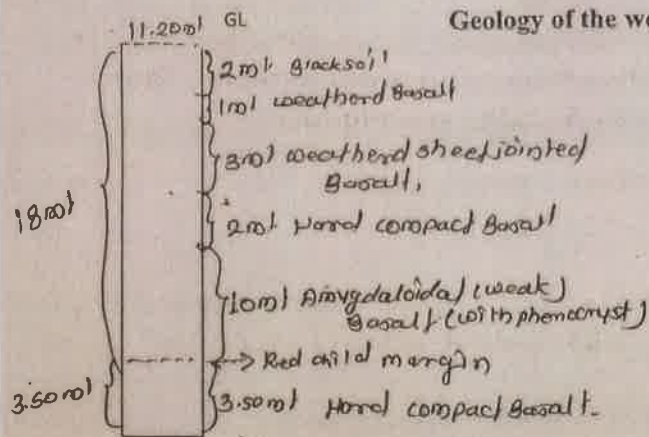 Geology of the we
11.20mt GL
2mt Blacksoil
1mt weatherd Basalt
3mt weatherd sheetjointed
Basalt,
18mt
2mt Hard compact Basalt
10mt Amygdaloidal (weak)
Basalt (with phenocryst)
Red child margin
3.50mt
3.50mt Hard compact Basalt.